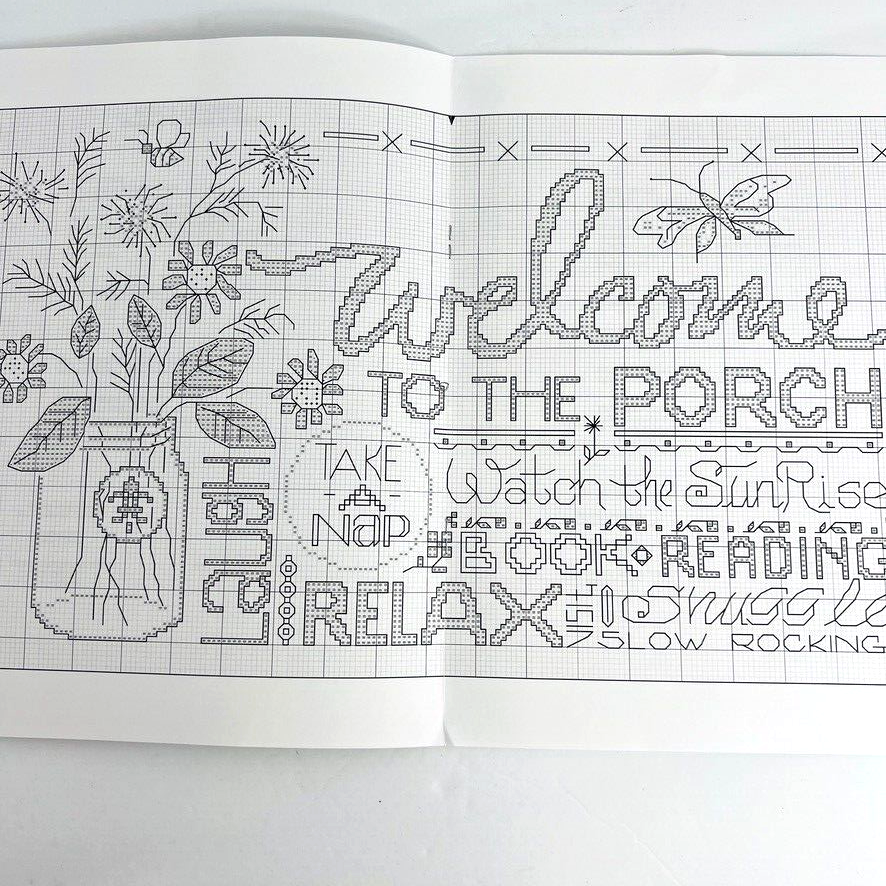 Welcome
TO THE PORCH
TAKE
A
NaP
Watch the SunRise
BOOK READING
LaUgH
RELAX
Snuggle
SLOW ROCKING